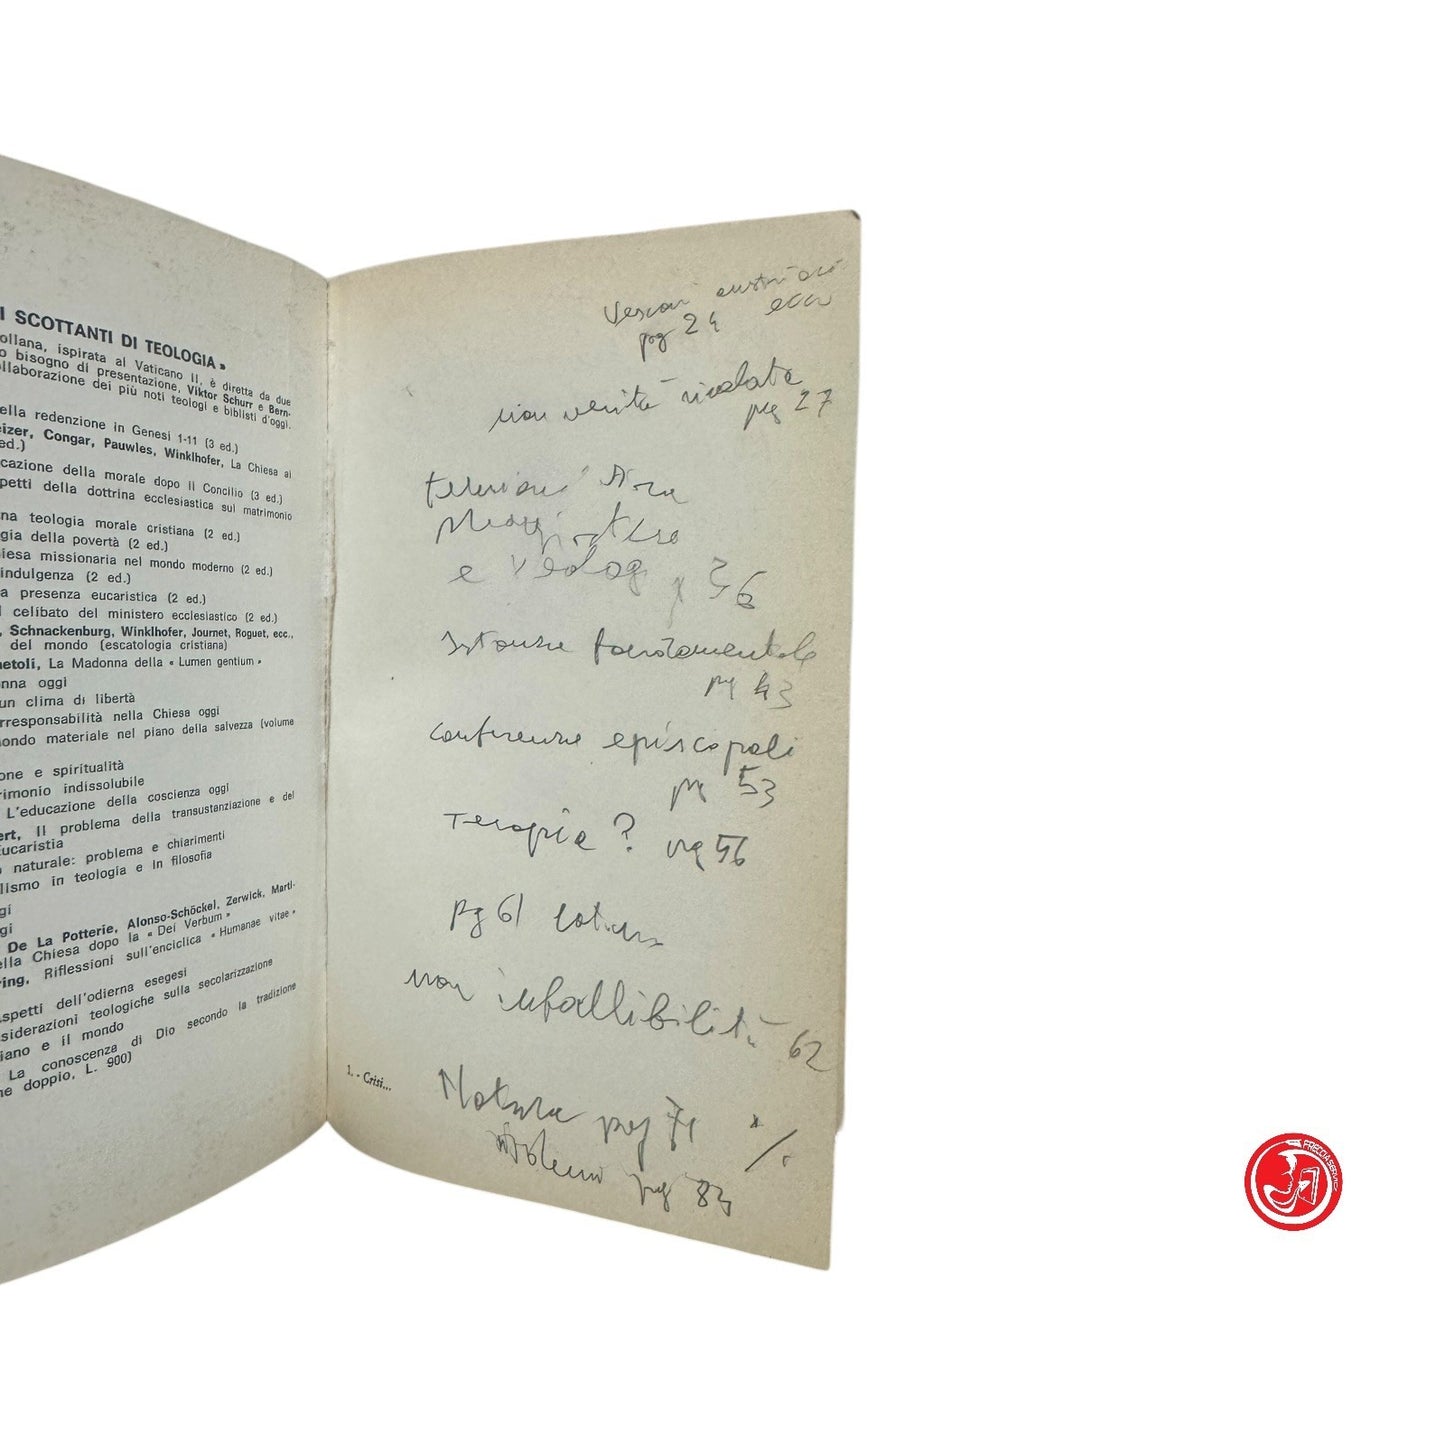 I SCOTTANTI DI TEOLOGIA»
ollana, ispirata al Vaticano II, è diretta da due
o bisogno di presentazione, Viktor Schurr e Bern-
llaborazione dei più noti teologi e biblisti d'oggi.
ella redenzione in Genesi 1-11 (3 ed.)
eizer, Congar, Pauwles, Winklhofer, La Chiesa ai
ed.)
cazione della morale dopo il Concilio (3 ed.)
petti della dottrina ecclesiastica sul matrimonio
na teologia morale cristiana (2 ed.)
gia della povertà (2 ed.)
iesa missionaria nel mondo moderno (2 ed.)
indulgenza (2 ed.)
a presenza eucaristica (2 ed.)
l celibato del ministero ecclesiastico (2 ed.)
, Schnackenburg, Winklhofer, Journet, Roguet, ecc.,
del mondo (escatologia cristiana)
netoli, La Madonna della « Lumen gentium »
nna oggi
un clima di libertà
rresponsabilità nella Chiesa oggi
ondo materiale nel piano della salvezza (volume
one e spiritualità
rimonio indissolubile
L'educazione della coscienza oggi
ert, Il problema della transustanziazione e del
Eucaristia
o naturale: problema e chiarimenti
lismo in teologia e in filosofia
gi
gi
De La Potterie, Alonso-Schöckel, Zerwick, Marti-
ella Chiesa dopo la « Dei Verbum »
ring, Riflessioni sull'enciclica « Humanae vitae »
spetti dell'odierna esegesi
siderazioni teologiche sulla secolarizzazione
iano e il mondo
La conoscenza di Dio secondo la tradizione
ne doppio, L. 900)
Vescovi austriaci
ecco
pg 24
non verità rivelata
pg 27
tensioni tra
Magistero
e teolog p 36
Istanze fondamentale
pg 43
Conferenze episcopali
pg 53
Terapia? pg 56
pg 61
non infallibilità 62
1. - Crisi...
Natura pg 71
pg 83
FRECCIA SERVICE